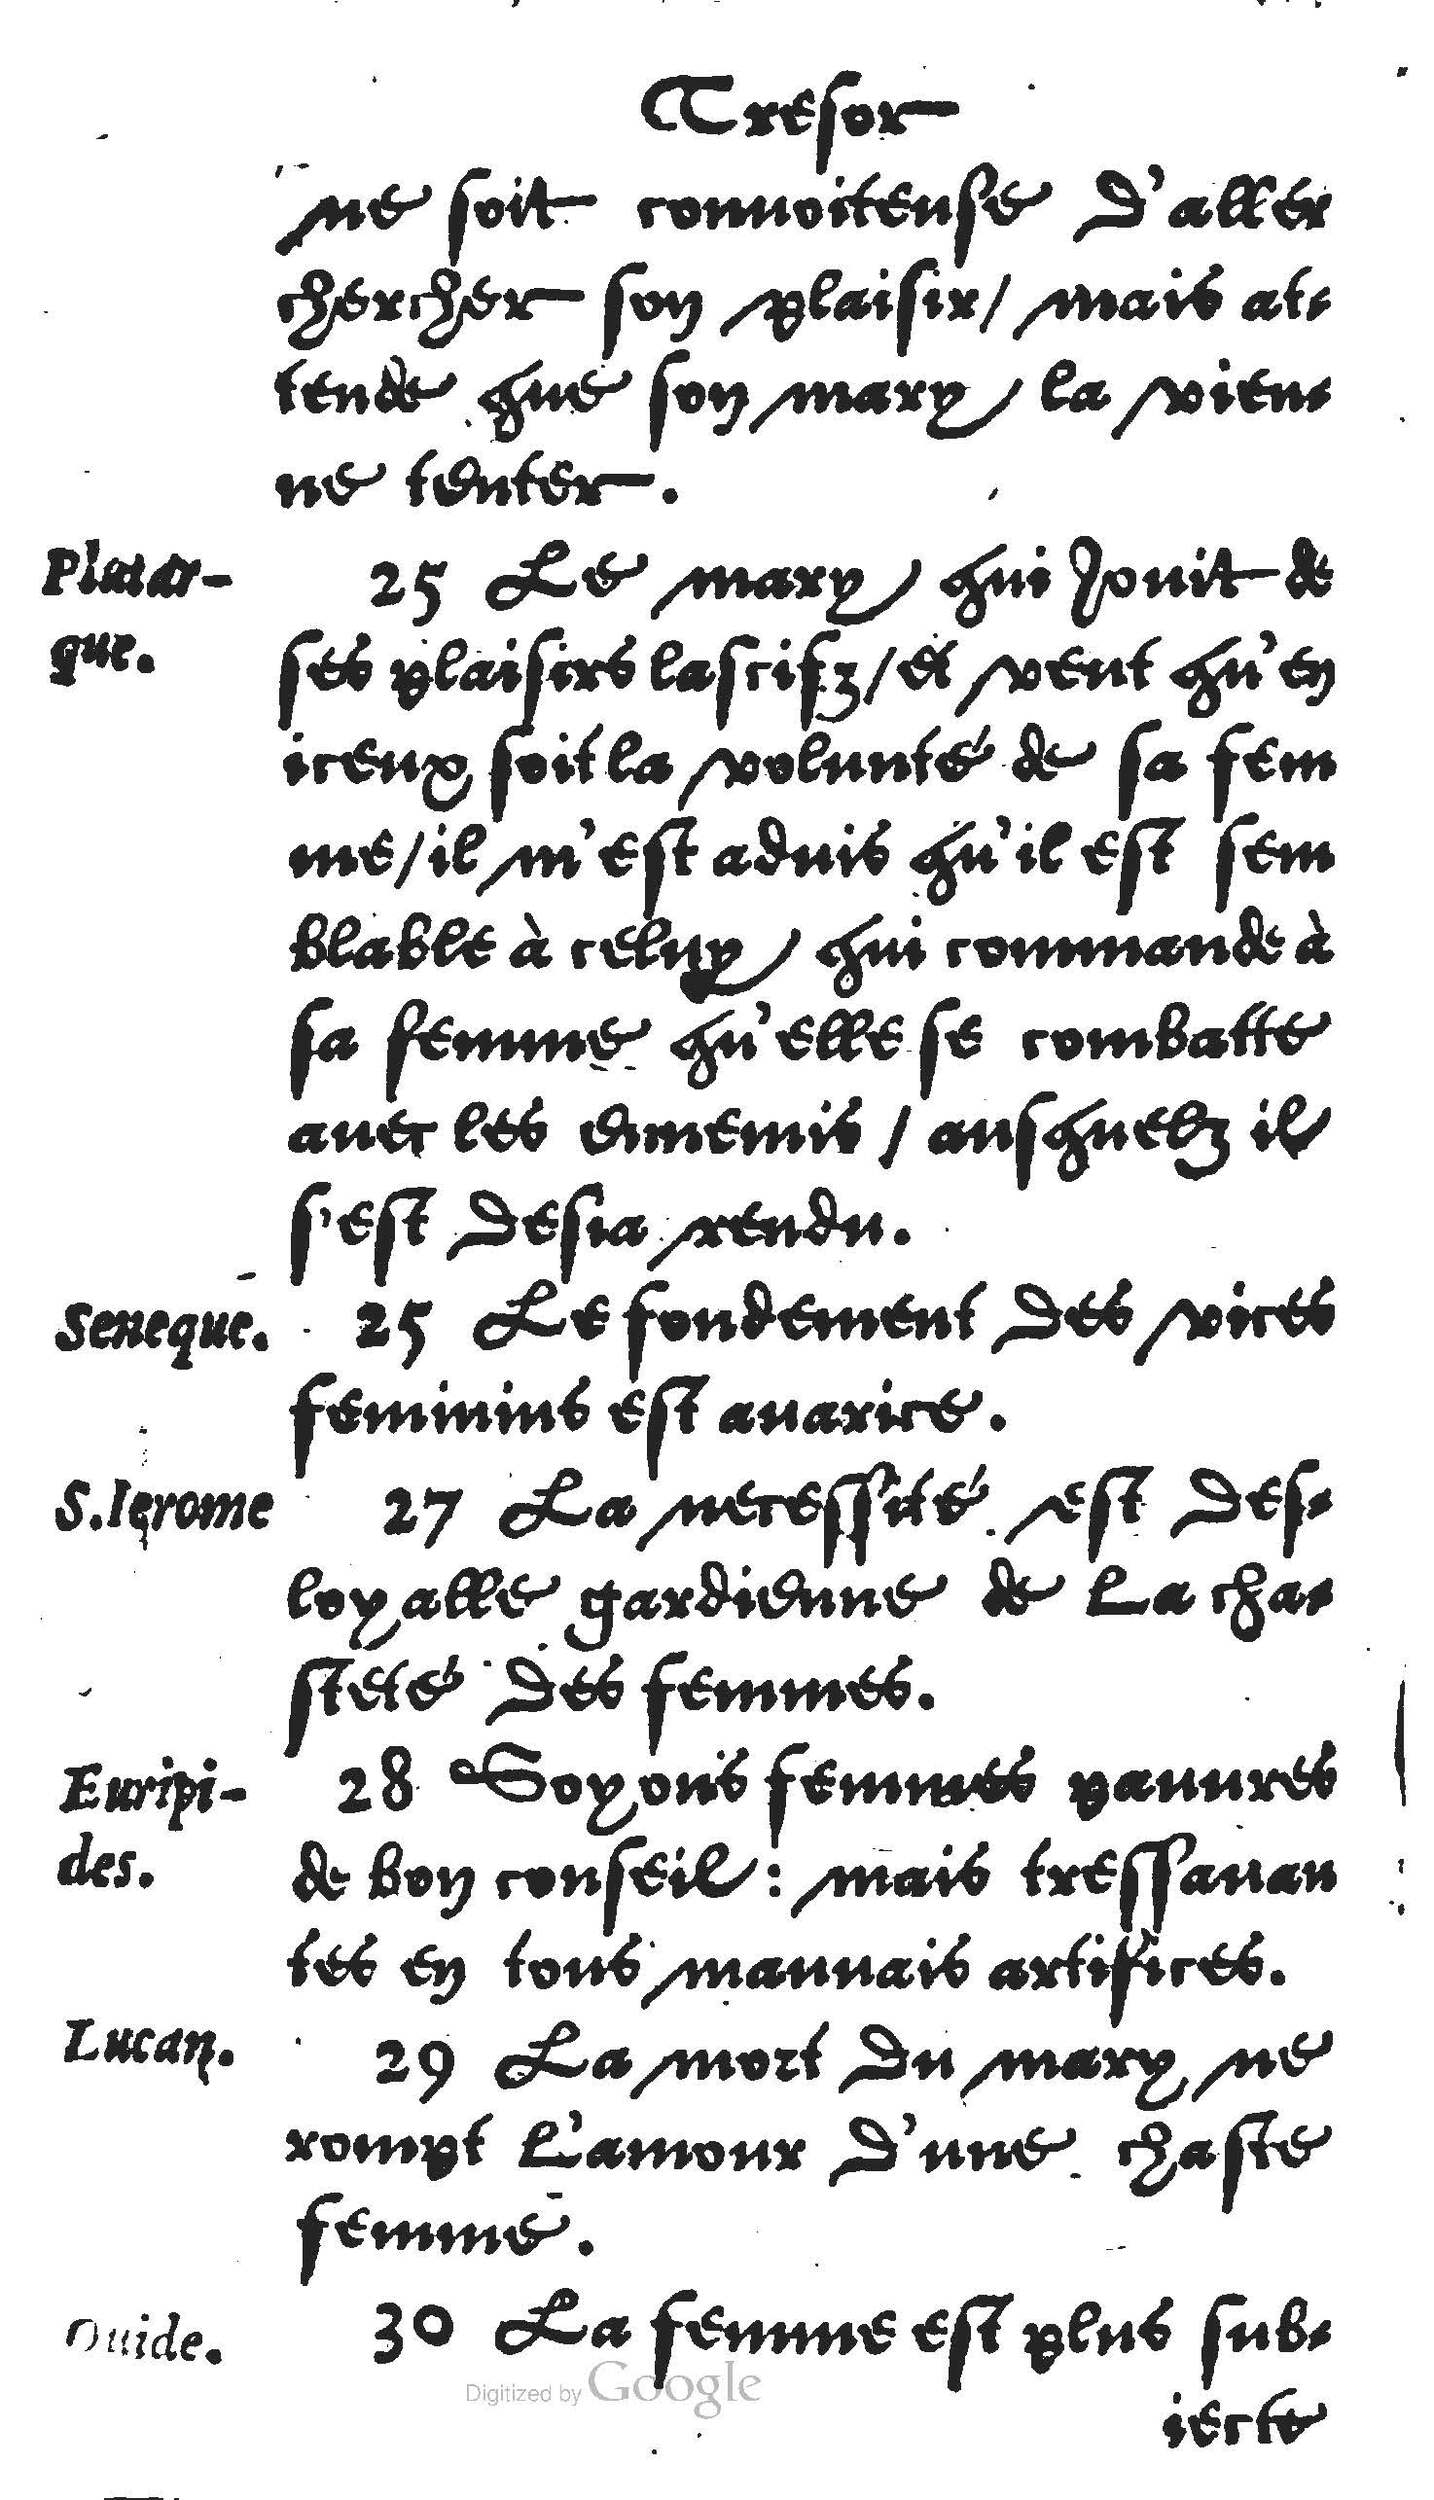 Tresor
ne soit conuoiteuse d'aller
chercher son plaisir/ mais at-
tende que son mary la vien-
ne tenter.
Plutar-
que.
25 Le mary qui jouit de
ses plaisirs lascifz/et veut qu'en
iceux soit la volunté de sa fem
me/il m'est aduis qu'il est sem
blable à celuy qui commande à
sa femme qu'elle se combatte
auec les ennemis / ausquelz il
s'est desia rendu.
Seneque.
25 Le fondement des vices
feminins est auarice.
S. Ierome
27 La necessité est des-
loyalle gardienne de la cha-
steté des femmes.
Euripi-
des.
28 Soyons femmes pauures
de bon conseil : mais tressauan
tes en tous mauuais artifices.
Lucan.
29 La mort du mary ne
rompt l'amour d'une chaste
femme.
Ouide.
30 La femme est plus sub-
iecte
Digitized by Google